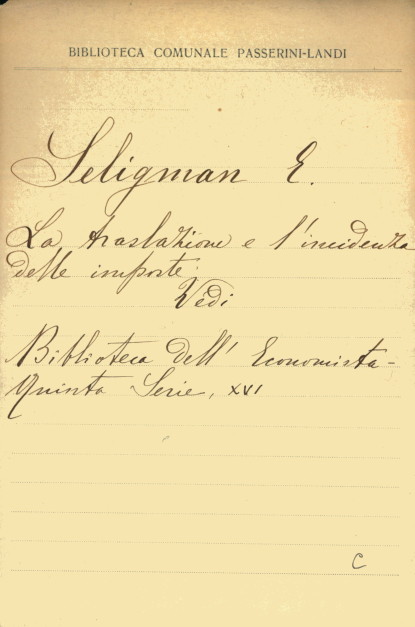 BIBLIOTECA COMUNALE PASSERINI-LANDI
Seligman E.
La traslazione e l'incidenza
delle imposte.
Vedi
Biblioteca dell' Economista-
Quinta Serie, XVI
C